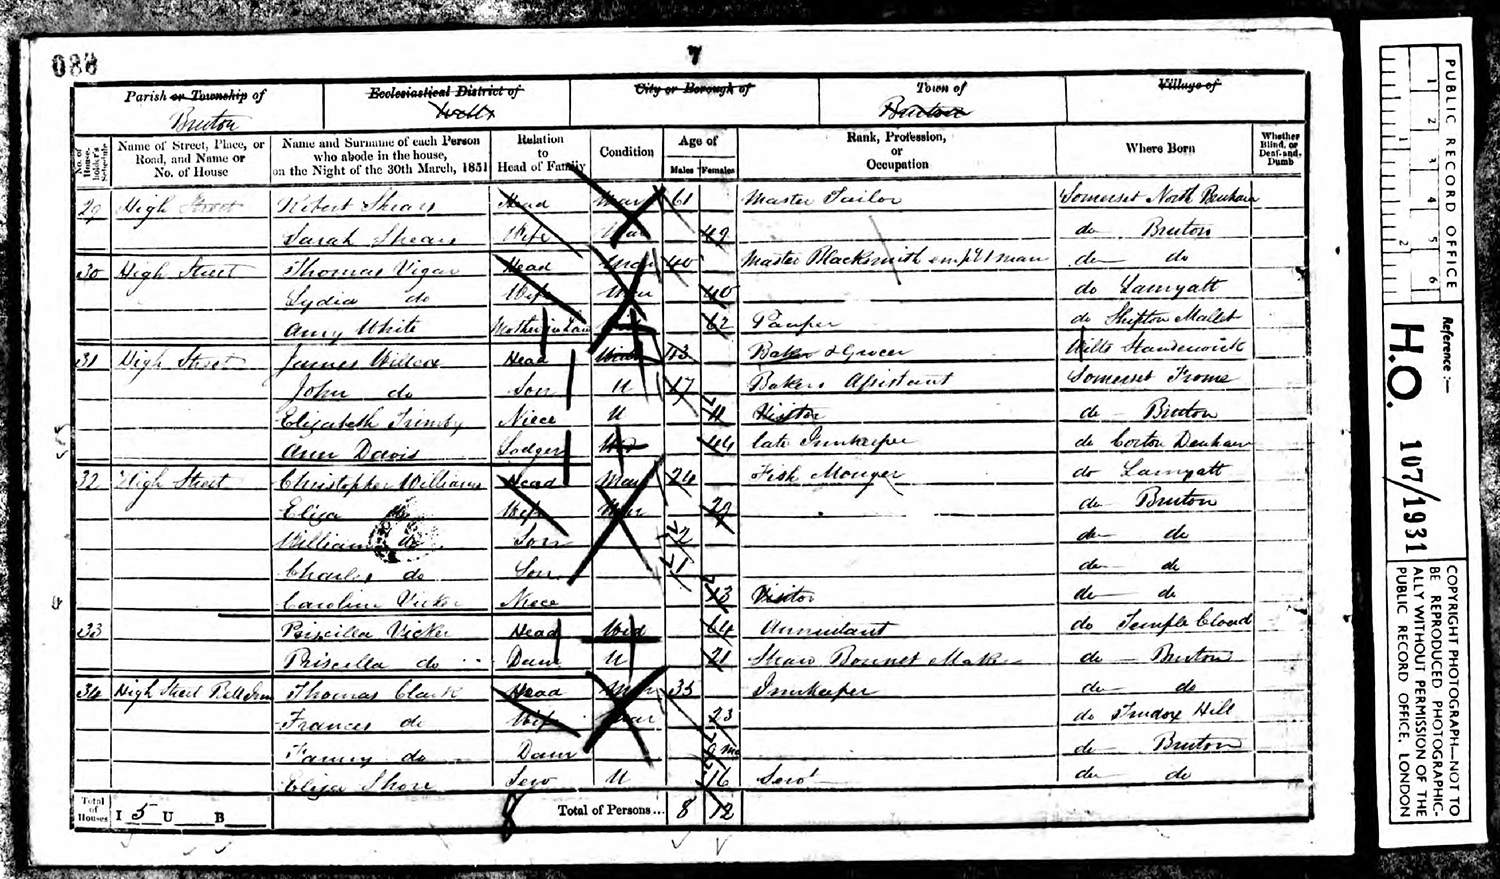 7
Parish or Township of
Bruton
Ecclesiastical District of
City or Borough of
Town of
Bruton
Village of
No. of House-holder's Schedule
Name of Street, Place, or Road, and Name or No. of House
Name and Surname of each Person who abode in the house, on the Night of the 30th March, 1851
Relation to Head of Family
Condition
Age of
Males Females
Rank, Profession, or Occupation
Where Born
Whether Blind, or Deaf-and-Dumb
29 High Street Robert Shears Head Mar 61 Master Tailor Somerset North
Sarah Shears Wife Mar 49 do Bruton
30 High Street Thomas Vigar Head Mar 40 Master Blacksmith empl 1 man do do
Lydia do Wife Mar 40 do Lamyatt
Amy White Mother in Law 62 Pauper do Shepton Mallet
31 High Street James Head Baker & Grocer Wilts Standerwick
John do Son U 17 Bakers Assistant Somerset Frome
Elizabeth Niece U 11 Visitor do Bruton
Ann Davis Lodger 44 late Innkeeper do Corton Denham
32 High Street Christopher Williams Head Mar 24 Fish Monger do Lamyatt
Eliza do Wife Mar 22 do Bruton
William do Son 2 do do
Charles do Son 1 do do
Caroline Vicker Niece 13 Visitor do do
33 Priscilla Vicker Head Wid 64 Annuitant do Temple Cloud
Priscilla do Daur U 21 Straw Bonnet Maker do Bruton
34 High Street Bell Inn Thomas Clark Head Mar 35 Innkeeper do do
Frances do Wife Mar 23 do Hill
Fanny do Daur 9 mo do Bruton
Eliza Shore Serv U 16 Serv do do
Total of Houses I 5 U B Total of Persons... 8 12
PUBLIC RECORD OFFICE
1 2 3 4 5 6
1 2
Reference :—
H.O. 107/1931
COPYRIGHT PHOTOGRAPH—NOT TO
BE REPRODUCED PHOTOGRAPHIC-
ALLY WITHOUT PERMISSION OF THE
PUBLIC RECORD OFFICE, LONDON